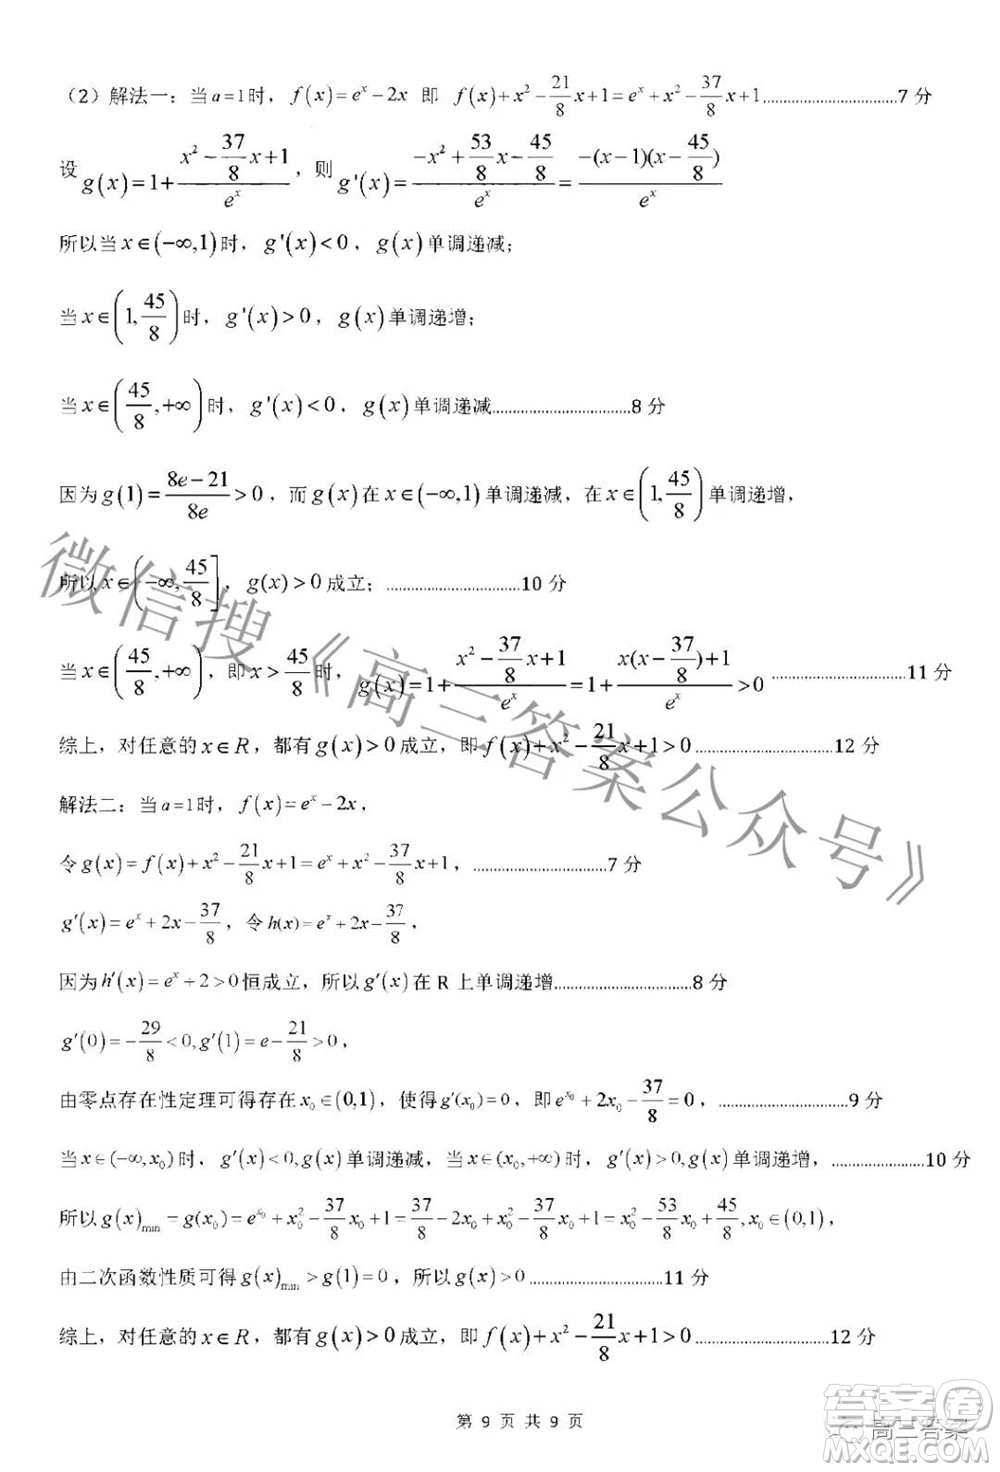 （2）解法一：当 a=1时，f(x)=e^x−2x 即 f(x)+x²−21/8x+1=e^x+x²−37/8x+1..................................7 分
设 g(x)=1+(x²−37/8x+1)/e^x，则 g'(x)=(−x²+53/8x−45/8)/e^x=(−(x−1)(x−45/8))/e^x
所以当 x∈(−∞,1)时，g'(x)<0，g(x)单调递减；
当 x∈(1,45/8)时，g'(x)>0，g(x)单调递增；
当 x∈(45/8,+∞)时，g'(x)<0，g(x)单调递减..................................8 分
因为 g(1)=(8e−21)/8e>0，而 g(x)在 x∈(−∞,1)单调递减，在 x∈(1,45/8)单调递增，
所以 x∈(−∞,45/8]，g(x)>0 成立；..................................10 分
当 x∈(45/8,+∞)，即 x>45/8 时，g(x)=1+(x²−37/8x+1)/e^x=1+(x(x−37/8)+1)/e^x>0 ..................................11 分
综上，对任意的 x∈R，都有 g(x)>0 成立，即 f(x)+x²−21/8x+1>0..................................12 分
解法二：当 a=1时，f(x)=e^x−2x，
令 g(x)=f(x)+x²−21/8x+1=e^x+x²−37/8x+1，..................................7 分
g′(x)=e^x+2x−37/8，令 h(x)=e^x+2x−37/8，
因为 h′(x)=e^x+2>0 恒成立，所以 g′(x)在 R 上单调递增..................................8 分
g′(0)=−29/8<0,g′(1)=e−21/8>0，
由零点存在性定理可得存在 x₀∈(0,1)，使得 g′(x₀)=0，即 e^x₀+2x₀−37/8=0，..................................9 分
当 x∈(−∞,x₀)时，g′(x)<0,g(x)单调递减，当 x∈(x₀,+∞)时，g′(x)>0,g(x)单调递增，........................10 分
所以 g(x)min=g(x₀)=e^x₀+x₀²−37/8x₀+1=37/8−2x₀+x₀²−37/8x₀+1=x₀²−53/8x₀+45/8,x₀∈(0,1)，
由二次函数性质可得 g(x)min>g(1)=0，所以 g(x)>0..................................11 分
综上，对任意的 x∈R，都有 g(x)>0 成立，即 f(x)+x²−21/8x+1>0..................................12 分
第 9 页 共 9 页
微信搜《高三答案公众号》
答案圈
高三答案
MXQE.COM